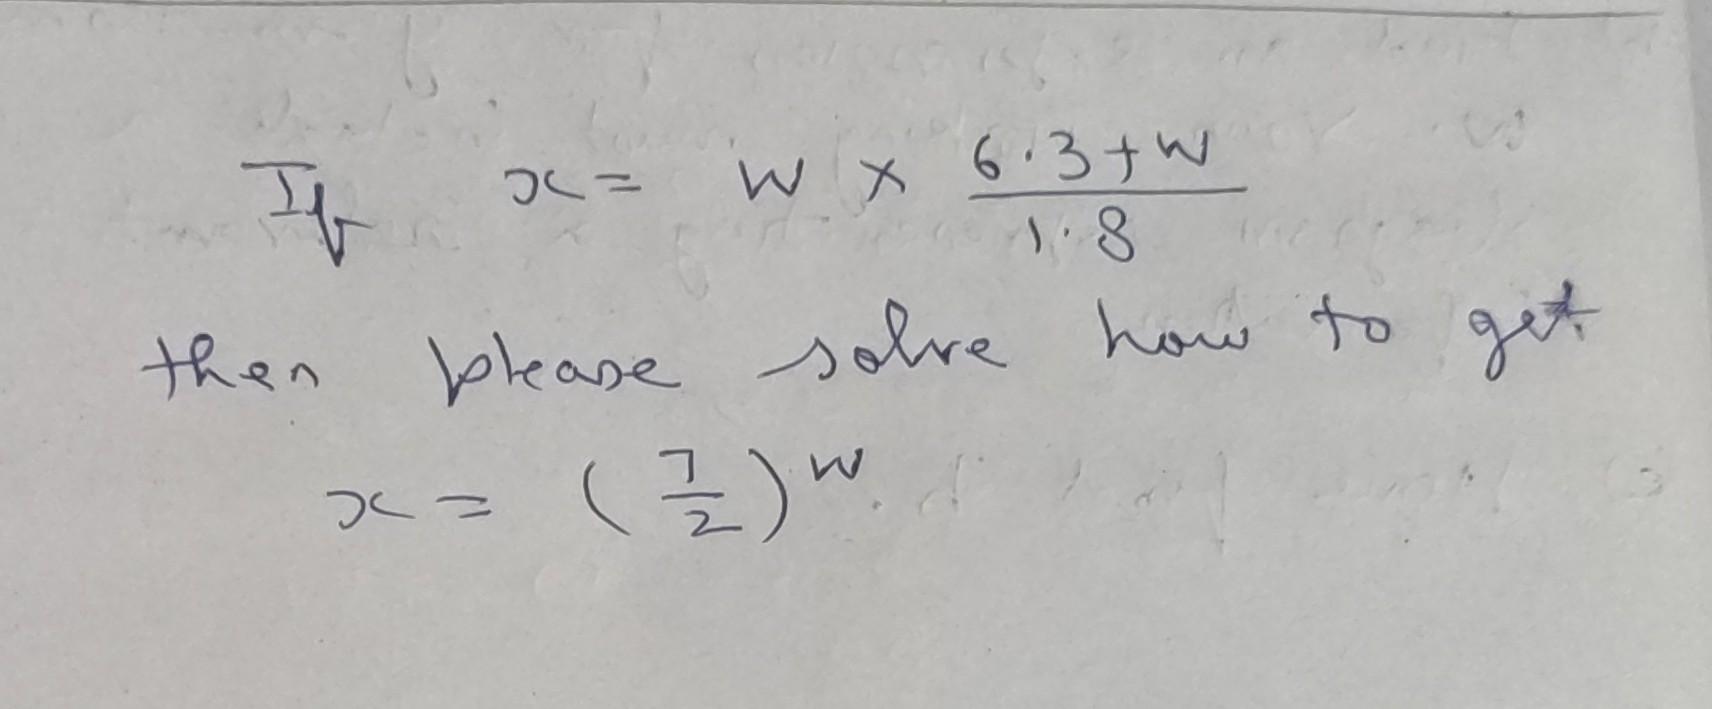 If x = w × (6.3+w)/1.8
then please solve how to get
x = (7/2)^w